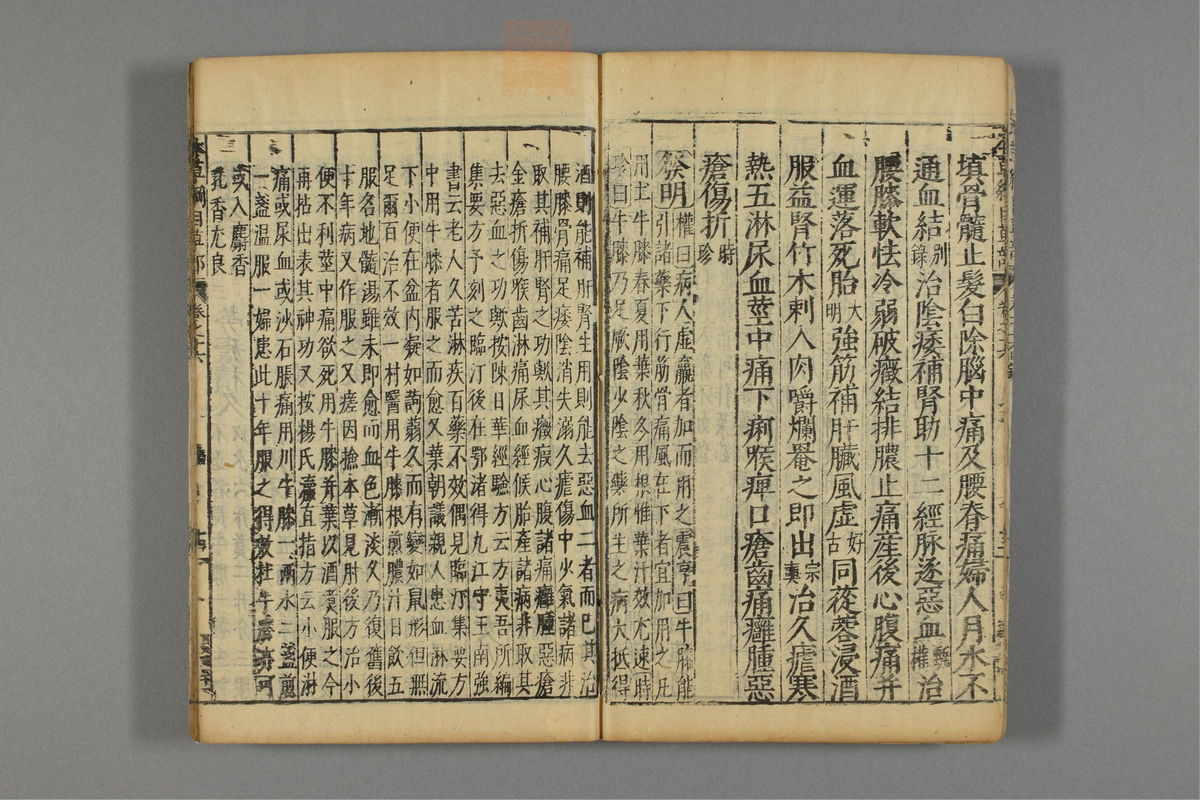 填骨髓止髮白除腦中痛及腰脊痛婦人月水不
通血結別錄治陰痿補腎助十二經脉逐惡血甄權治
腰膝軟怯冷弱破癥結排膿止痛産後心腹痛并
血運落死胎大明強筋補肝臟風虛好古同蓯蓉浸酒
服益腎竹木刺入肉嚼爛罨之即出宗奭治久瘧寒
熱五淋尿血莖中痛下痢喉痺口瘡齒痛癰腫惡
瘡傷折時珍
發明權曰病人虛羸者加而用之震亨曰牛膝能
引諸藥下行筋骨痛風在下者宜加用之凡
用土牛膝春夏用葉秋冬用根惟葉汁效尤速時
珍曰牛膝乃足厥陰少陰之藥所主之病大抵得
酒則能補肝腎生用則能去惡血二者而已其治
腰膝骨痛足痿陰消失溺久瘧傷中少氣諸病非
取其補肝腎之功歟其癥瘕心腹諸痛癰腫惡瘡
金瘡折傷喉齒淋痛尿血經候胎産諸病非取其
去惡血之功歟按陳日華經驗方云方夷吾所編
集要方予刻之臨汀後在鄂渚得九江守王南強
書云老人久苦淋疾百藥不效偶見臨汀集要方
中用牛膝者服之而愈又葉朝議親人患血淋流
下小便在盆內凝如蒟蒻久而有變如鼠形但無
足爾百治不效一村醫用牛膝根煎膿汁日飲五
服名地髓湯雖未即愈而血色漸淡久乃復舊後
十年病又作服之又瘥因撿本草見肘後方治小
便不利莖中痛欲死用牛膝并葉以酒煮服之今
再拈出表其神功又按楊氏直指方云小便淋
痛或尿血或沙石脹痛用川牛膝一兩水二盞煎
一盞温服一婦患此十年服之得效杜牛膝亦可
或入麝香
乳香尤良
本草綱目草部 卷之十六